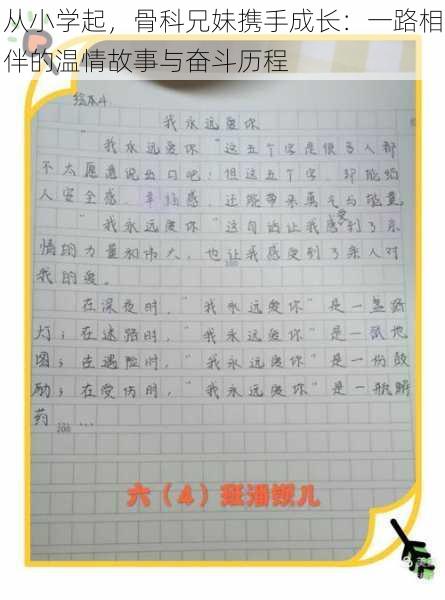 从小学起，骨科兄妹携手成长：一路相
伴的温情故事与奋斗历程
绘本4
我永远爱你
“我永远爱你”这五个字是很多人都
不太愿意说出口吧！但这五个字，却能给
人安全感、幸福感，还能带来勇气与能量
“我永远爱你”这句话让我感受到了亲
情的力量和伟大，也让我感受到了亲人对
我的爱。
在深夜时，“我永远爱你”是一盏路
灯；在迷路时，“我永远爱你”是一张地
图；在遇险时，“我永远爱你”是一份鼓
励；在受伤时，“我永远爱你”是一瓶
药……
300
六（4）班潘